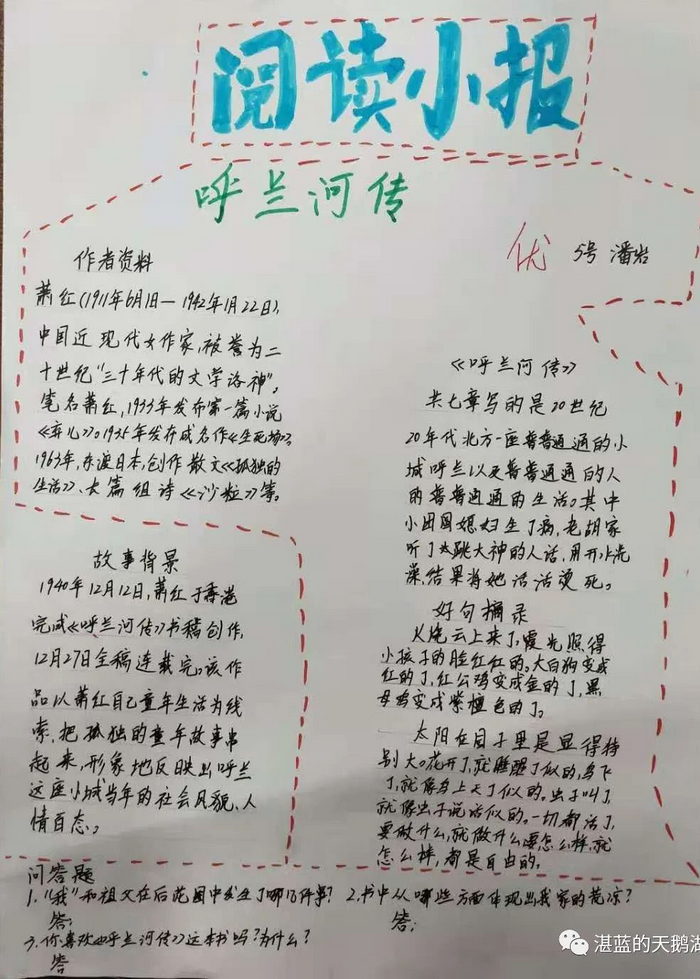 阅读小报
呼兰河传
优 5号 潘岩
作者资料
萧红(1911年6月1日—1942年1月22日),
中国近现代女作家,被誉为二
十世纪"三十年代的文学洛神",
笔名萧红,1933年发布第一篇小说
《弃儿》。1935年发布成名作《生死场》,
1963年,东渡日本,创作散文《孤独的
生活》、长篇组诗《沙粒》等。
故事背景
1940年12月12日,萧红于香港
完成《呼兰河传》书稿创作,
12月27日全稿连载完。该作
品以萧红自己童年生活为线
索,把孤独的童年故事串
起来,形象地反映出呼兰
这座小城当年的社会风貌、人
情百态。
《呼兰河传》
共七章写的是20世纪
20年代北方一座普普通通的小
城呼兰以及普普通通的人
的普普通通的生活。其中
小团圆媳妇生了病,老胡家
听了太跳大神的人话,用开水洗
澡,结果将她活活烫死。
好句摘录
火烧云上来了,霞光照得
小孩子的脸红红的。大白狗变成
红的了,红公鸡变成金的了,黑
母鸡变成紫檀色的了。
太阳在园子里是显得特
别大。花开了,就睡醒了似的,鸟飞
了,就像鸟上天了似的。虫子叫了,
就像虫子说话似的。一切都活了,
要做什么,就做什么要怎么样,就
怎么样,都是自由的。
问答题
1."我"和祖父在后花园中发生了哪几件事?
答:
2.书中从哪些方面体现出我家的荒凉?
答:
3.你喜欢《呼兰河传》这本书吗?为什么?
答
湛蓝的天鹅湖